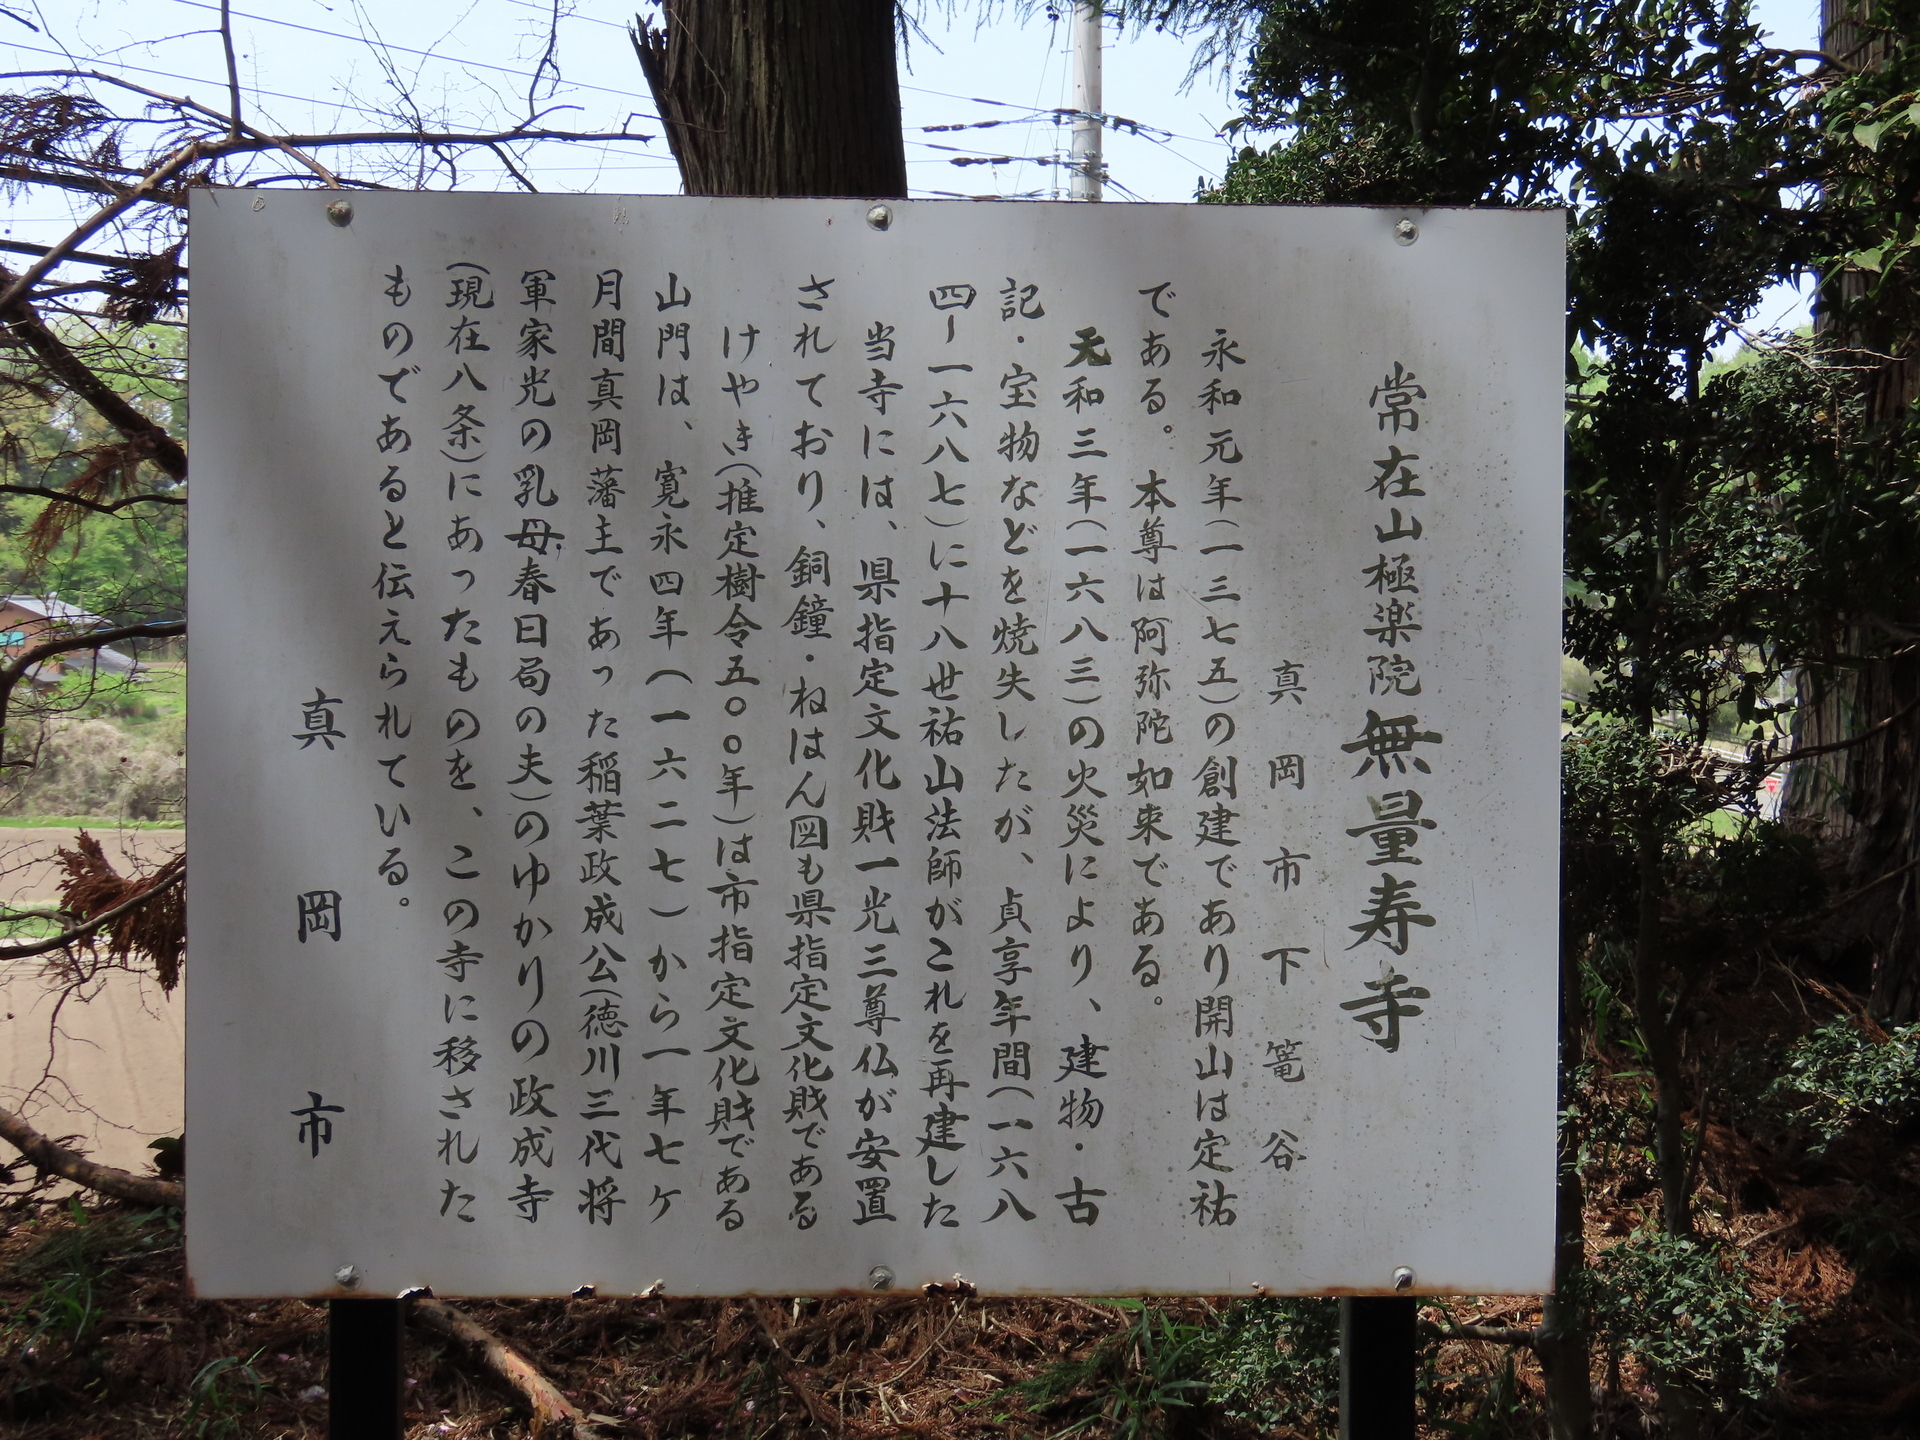 常在山極楽院無量寿寺
真岡市下篭谷
永和元年(一三七五)の創建であり開山は定祐
である。本尊は阿弥陀如来である。
天和三年(一六八三)の火災により、建物・古
記・宝物などを焼失したが、貞享年間(一六八
四ー一六八七)に十八世祐山法師がこれを再建した
当寺には、県指定文化財一光三尊仏が安置
されており、銅鐘・ねはん図も県指定文化財である
けやき(推定樹令五〇〇年)は市指定文化財である
山門は、寛永四年(一六二七)から一年七ケ
月間真岡藩主であった稲葉政成公(徳川三代将
軍家光の乳母、春日局の夫)のゆかりの政成寺
(現在八条)にあったものを、この寺に移された
ものであると伝えられている。
真岡市